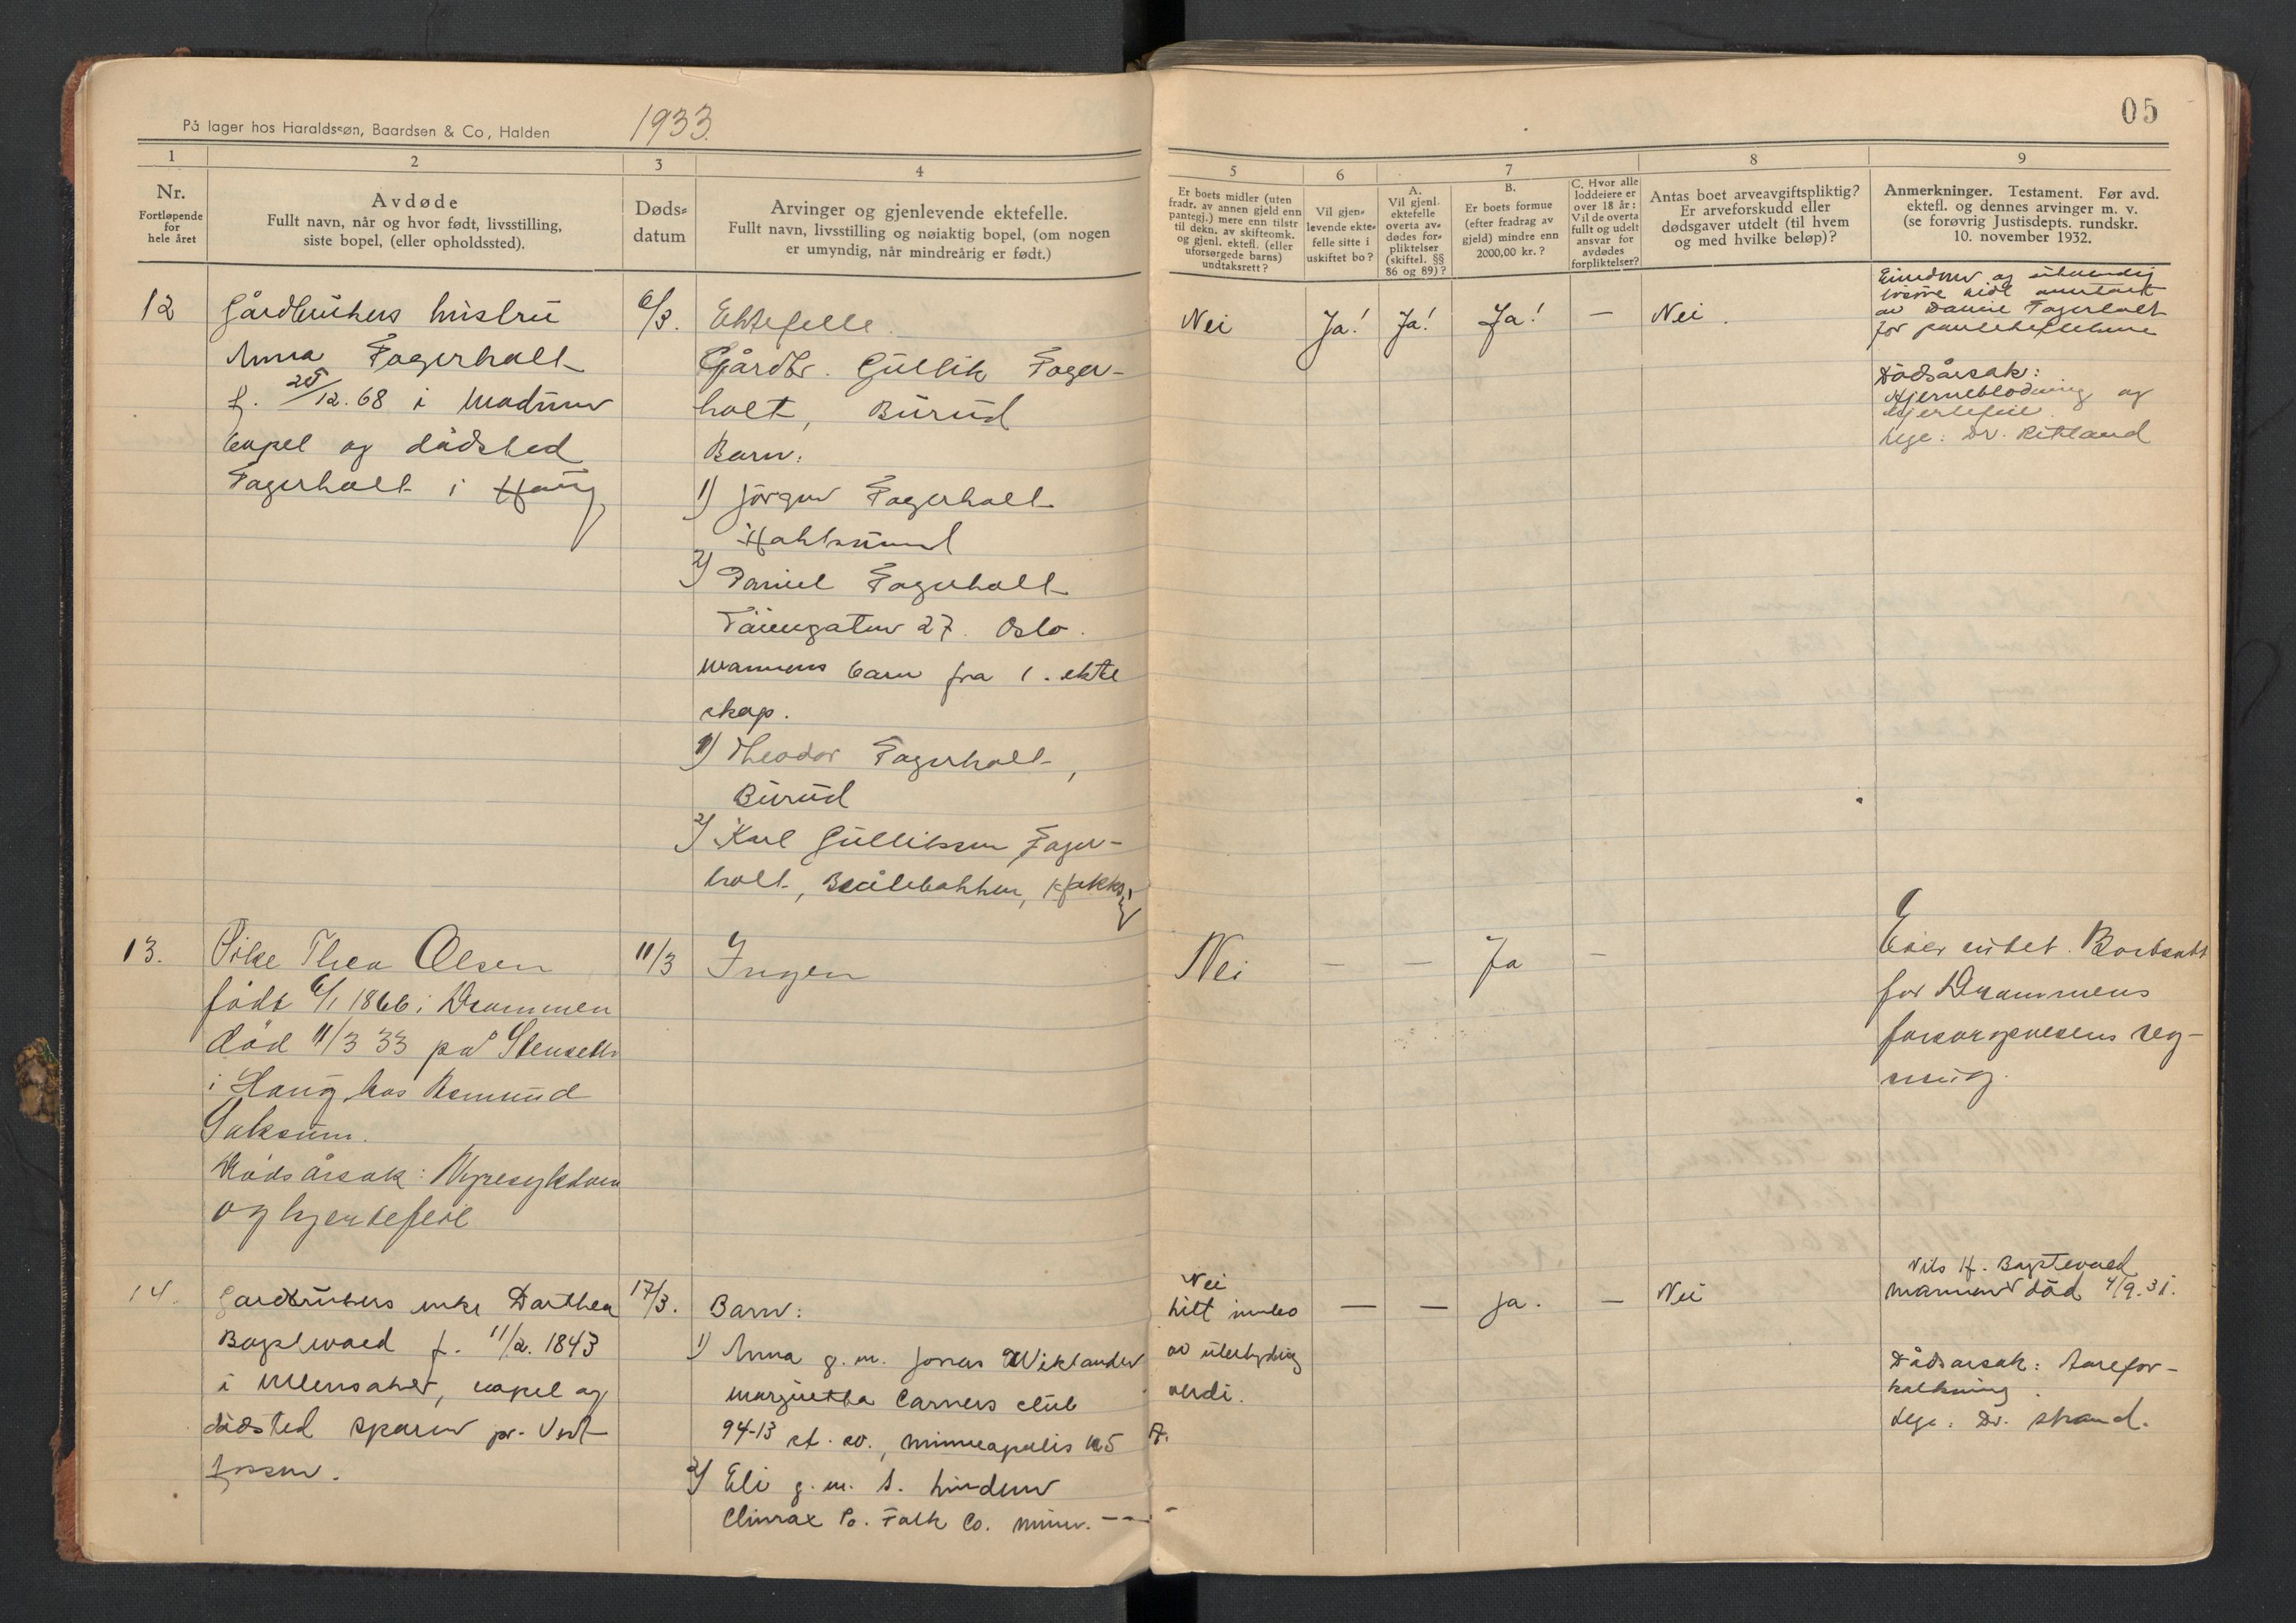 På lager hos Haraldssøn, Baardsen & Co, Halden
1933.
05
1
2
3
4
5
6
7
8
9
Nr.
Fortløpende
for
hele året
Avdøde
Fullt navn, når og hvor født, livsstilling,
siste bopel, (eller opholdssted).
Døds-
datum
Arvinger og gjenlevende ektefelle.
Fullt navn, livsstilling og nøiaktig bopel, (om nogen
er umyndig, når mindreårig er født.)
Er boets midler (uten
fradr. av annen gjeld enn
pantegj.) mere enn tilstr
til dekn. av skifteomk.
og gjenl. ektefl. (eller
uforsørgede barns)
undtaksrett?
Vil gjen-
levende ekte-
felle sitte i
uskiftet bo?
A.
Vil gjenl.
ektefelle
overta av-
dødes for-
pliktelser
(skiftel. §§
86 og 89)?
B.
Er boets formue
(efter fradrag av
gjeld) mindre enn
2000,00 kr.?
C. Hvor alle
loddeiere er
over 18 år:
Vil de overta
fullt og udelt
ansvar for
avdødes
forpliktelser?
Antas boet arveavgiftspliktig?
Er arveforskudd eller
dødsgaver utdelt (til hvem
og med hvilke beløp)?
Anmerkninger. Testament. Før avd.
ektefl. og dennes arvinger m. v.
(se forøvrig Justisdepts. rundskr.
10. november 1932.
12
Gårdbrukers hustru
Anna Fagerholt
f. 25/12.68 i Modum
bopel og dødsted
Fagerholt i Haug
6/3.
Ektefelle.
Gårdbr. Gullik Fager-
holt, Burud
Barn:
1) Jørgen Fagerholt
Hokksund
2) Daniel Fagerholt
Tøiengaten 27. Oslo.
Mannens barn fra 1. ekte
skap.
1) Theodor Fagerholt,
Burud
2) Karl Gulliksen Fager-
holt,
Nei
Ja!
Ja!
Ja!
—
Nei.
Eiendom og
av Daniel Fagerholt
for
Dødsårsak:
Hjerneblødning og
hjertefeil.
Lege: Dr.
13.
Pike Thea Olsen
født 6/1 1866 i Drammen
død 11/3 33 på Stensett
i Haug hos Asmund
Saksum.
Dødsårsak: Nyresykdom
og hjertefeil
11/3
Ingen
Nei
—
—
Ja
—
Eier intet. Bortsatt
for Drammens
forsorgvesens reg-
ning.
14.
Gardbrukers enke Dorthea
f. 11/2. 1843
i Ullensaker, bopel og
dødsted pr. Vest-
fossen.
17/3.
Barn:
1) Anna g.m. Jonas Wiklander
Carners club
94-13 st. so., Minneapolis U S A.
2) Eli g.m. S. Linden
Climax Po. Falk Co. Minn. — — -
Nei
Litt innbo
av ubetydelig
verdi.
—
—
ja.
—
Nei
Nils H.
mannen død 4/9.31.
Dødsårsak: Aarefor-
kalkning.
Lege: Dr. Strand.